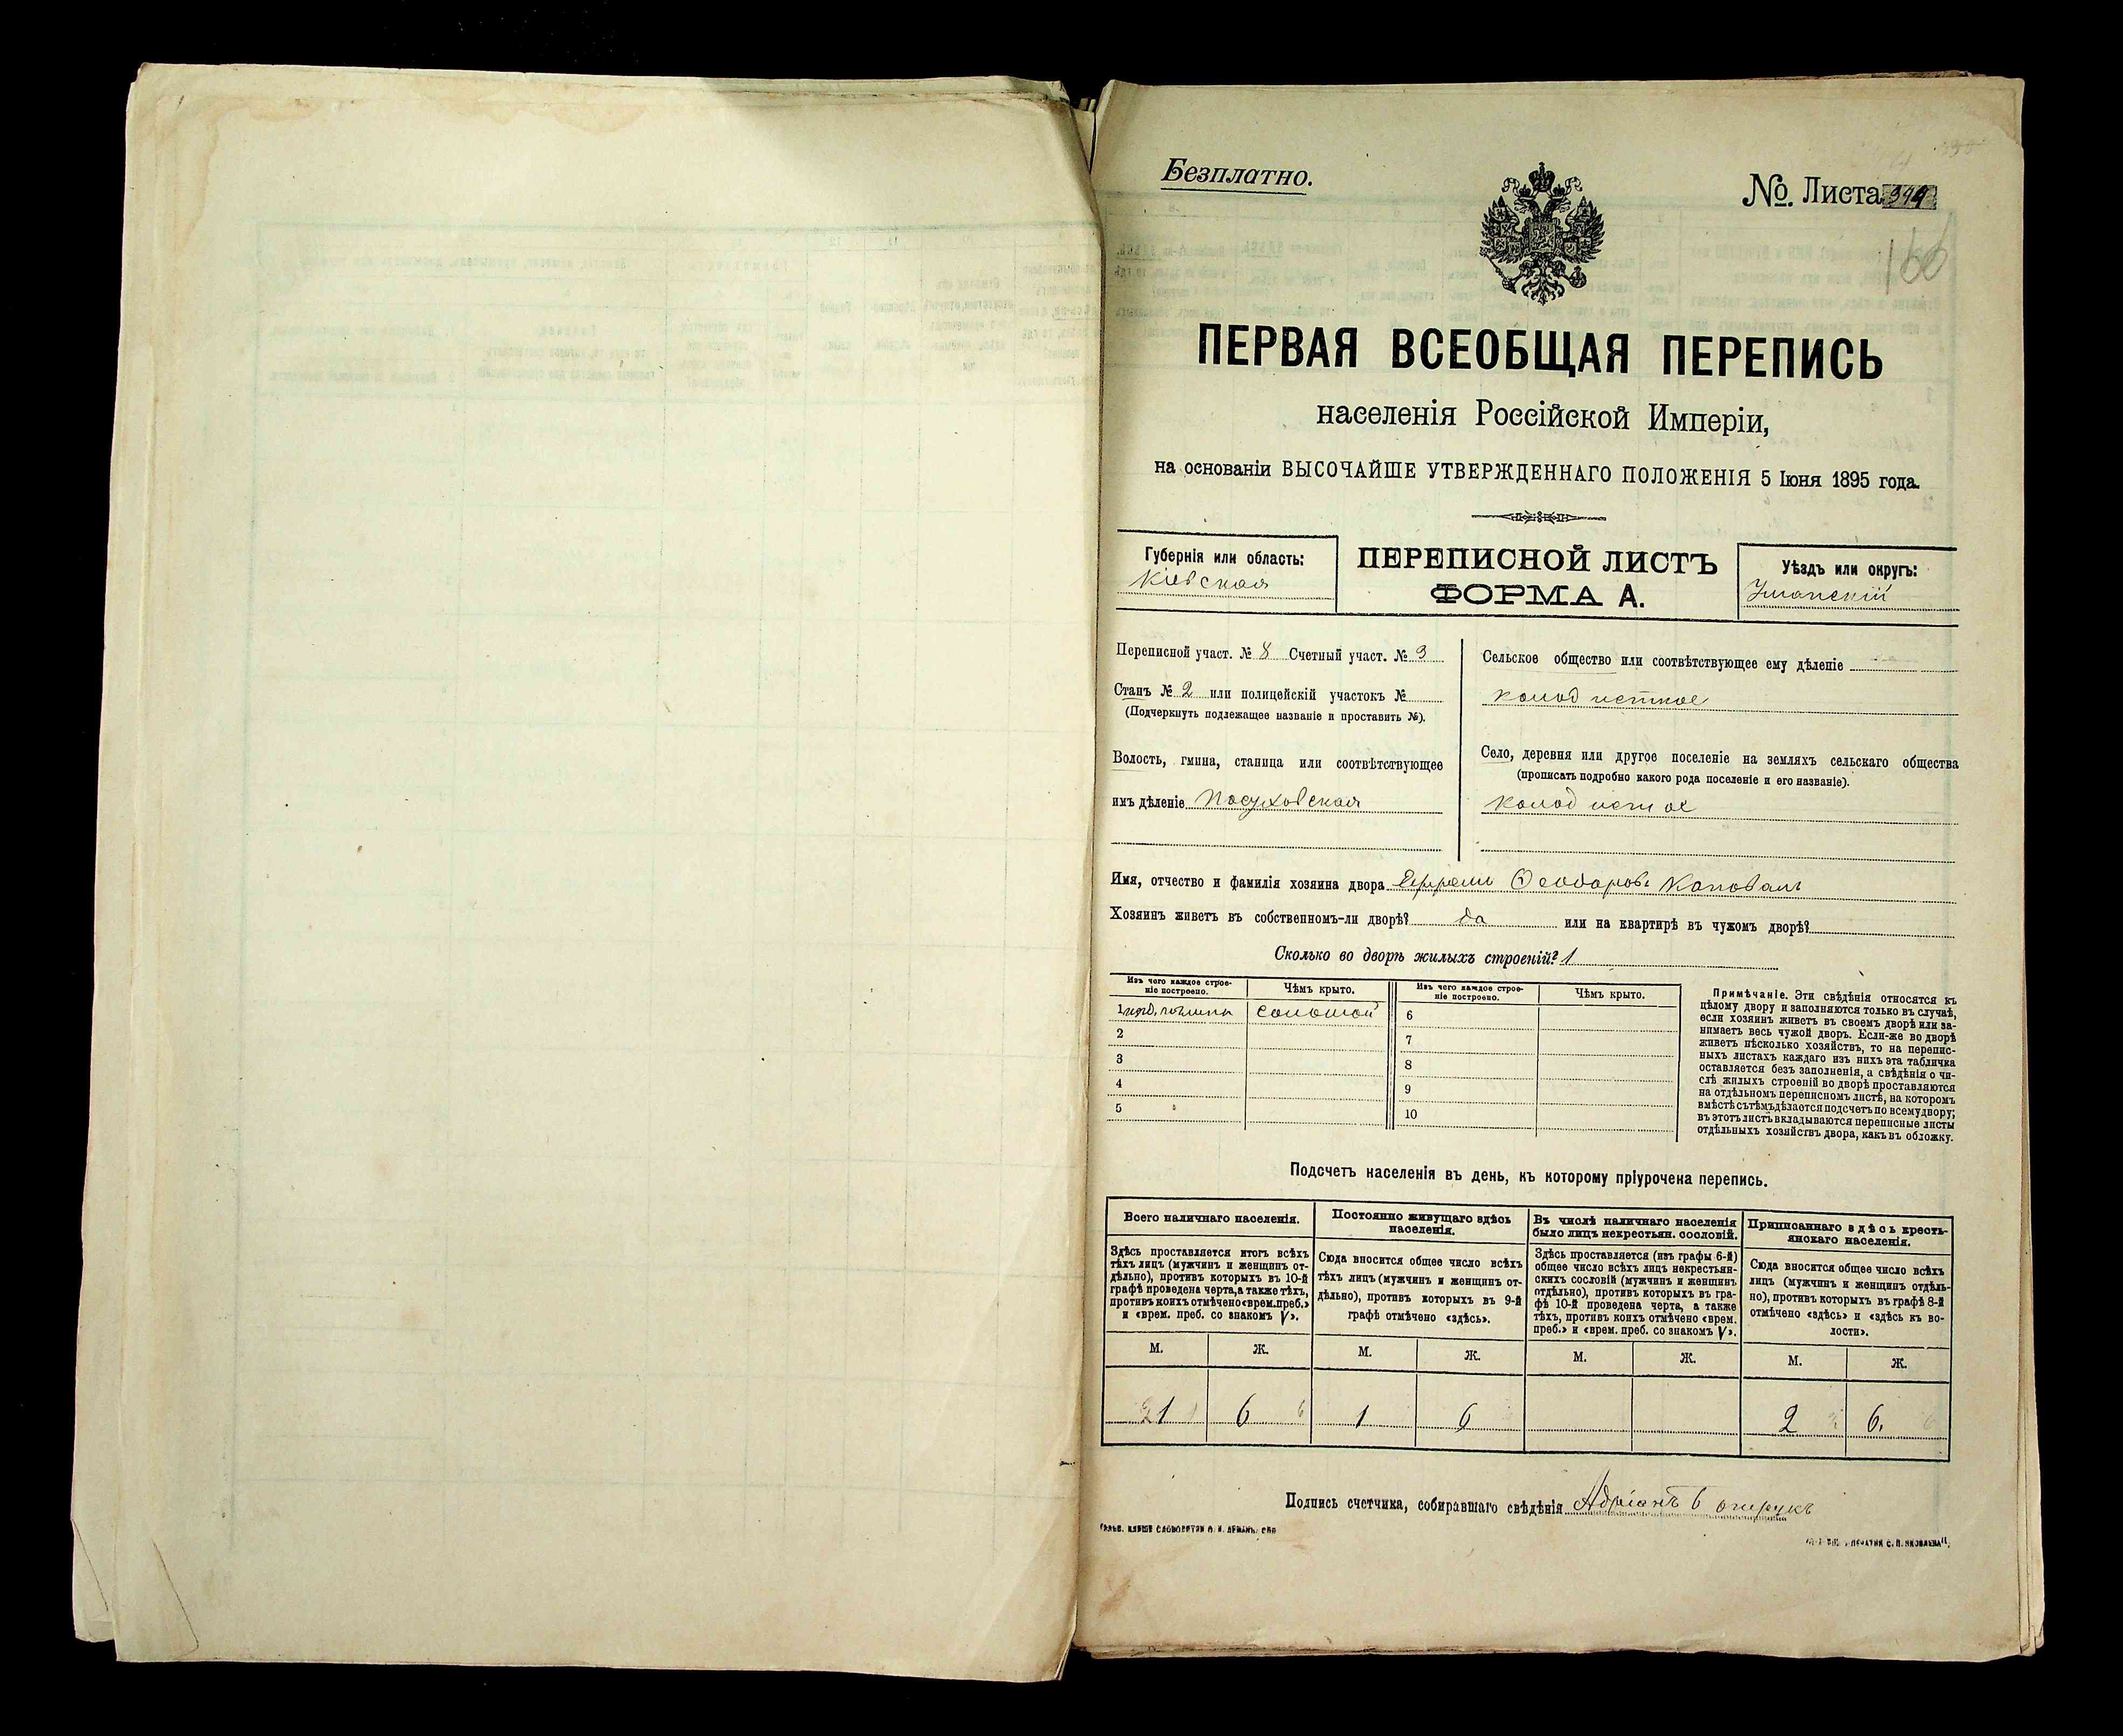 Безплатно.
№ Листа 344
166
ПЕРВАЯ ВСЕОБЩАЯ ПЕРЕПИСЬ
населенія Россійской Имперіи,
на основаніи ВЫСОЧАЙШЕ УТВЕРЖДЕННАГО ПОЛОЖЕНІЯ 5 Іюня 1895 года.
Губернія или область:
Кіевская
ПЕРЕПИСНОЙ ЛИСТЪ
ФОРМА А.
Уѣздъ или округъ:
Уманскій
Переписной участ. № 8 Счетный участ. № 3
Станъ № 2 или полицейскій участокъ №
(Подчеркнуть подлежащее названіе и проставить №).
Волость, гмина, станица или соотвѣтствующее
имъ дѣленіе Посуховская
Сельское общество или соотвѣтствующее ему дѣленіе
колодистное
Село, деревня или другое поселеніе на земляхъ сельскаго общества
(прописать подробно какого рода поселеніе и его названіе).
колодистое
Имя, отчество и фамилія хозяина двора Ефремъ Ѳеодоровъ Коновалъ
Хозяинъ живетъ въ собственномъ-ли дворѣ? да или на квартирѣ въ чужомъ дворѣ?
Сколько во дворѣ жилыхъ строеній? 1
Изъ чего каждое строе-
ніе построено.
Чѣмъ крыто.
Изъ чего каждое строе-
ніе построено.
Чѣмъ крыто.
1 соломой 6
2 7
3 8
4 9
5 10
Примѣчаніе. Эти свѣдѣнія относятся къ
цѣлому двору и заполняются только въ случаѣ,
если хозяинъ живетъ въ своемъ дворѣ или за-
нимаетъ весь чужой дворъ. Если-же во дворѣ
живетъ нѣсколько хозяйствъ, то на перепис-
ныхъ листахъ каждаго изъ нихъ эта табличка
оставляется безъ заполненія, а свѣдѣнія о чи-
слѣ жилыхъ строеній во дворѣ проставляются
на отдѣльномъ переписномъ листѣ, на которомъ
вмѣстѣ съ тѣмъ дѣлается подсчетъ по всему двору;
въ этотъ листъ вкладываются переписные листы
отдѣльныхъ хозяйствъ двора, какъ въ обложку.
Подсчетъ населенія въ день, къ которому пріурочена перепись.
Всего наличнаго населенія.
Здѣсь проставляется итогъ всѣхъ
тѣхъ лицъ (мужчинъ и женщинъ от-
дѣльно), противъ которыхъ въ 10-й
графѣ проведена черта, а также тѣхъ,
противъ коихъ отмѣчено «врем. преб.»
и «врем. преб. со знакомъ V».
Постоянно живущаго здѣсь
населенія.
Сюда вносится общее число всѣхъ
тѣхъ лицъ (мужчинъ и женщинъ от-
дѣльно), противъ которыхъ въ 9-й
графѣ отмѣчено «здѣсь».
Въ числѣ наличнаго населенія
было лицъ некрестьян. сословій.
Здѣсь проставляется (изъ графы 6-й)
общее число всѣхъ лицъ некрестьян-
скихъ сословій (мужчинъ и женщинъ
отдѣльно), противъ которыхъ въ гра-
фѣ 10-й проведена черта, а также
тѣхъ, противъ коихъ отмѣчено «врем.
преб.» и «врем. преб. со знакомъ V».
Приписаннаго здѣсь кресть-
янскаго населенія.
Сюда вносится общее число всѣхъ
лицъ (мужчинъ и женщинъ отдѣль-
но), противъ которыхъ въ графѣ 8-й
отмѣчено «здѣсь» и «здѣсь къ во-
лости».
М. Ж. М. Ж. М. Ж. М. Ж.
1 6 1 6 2 6.
Подпись счетчика, собиравшаго свѣдѣнія Адріанъ